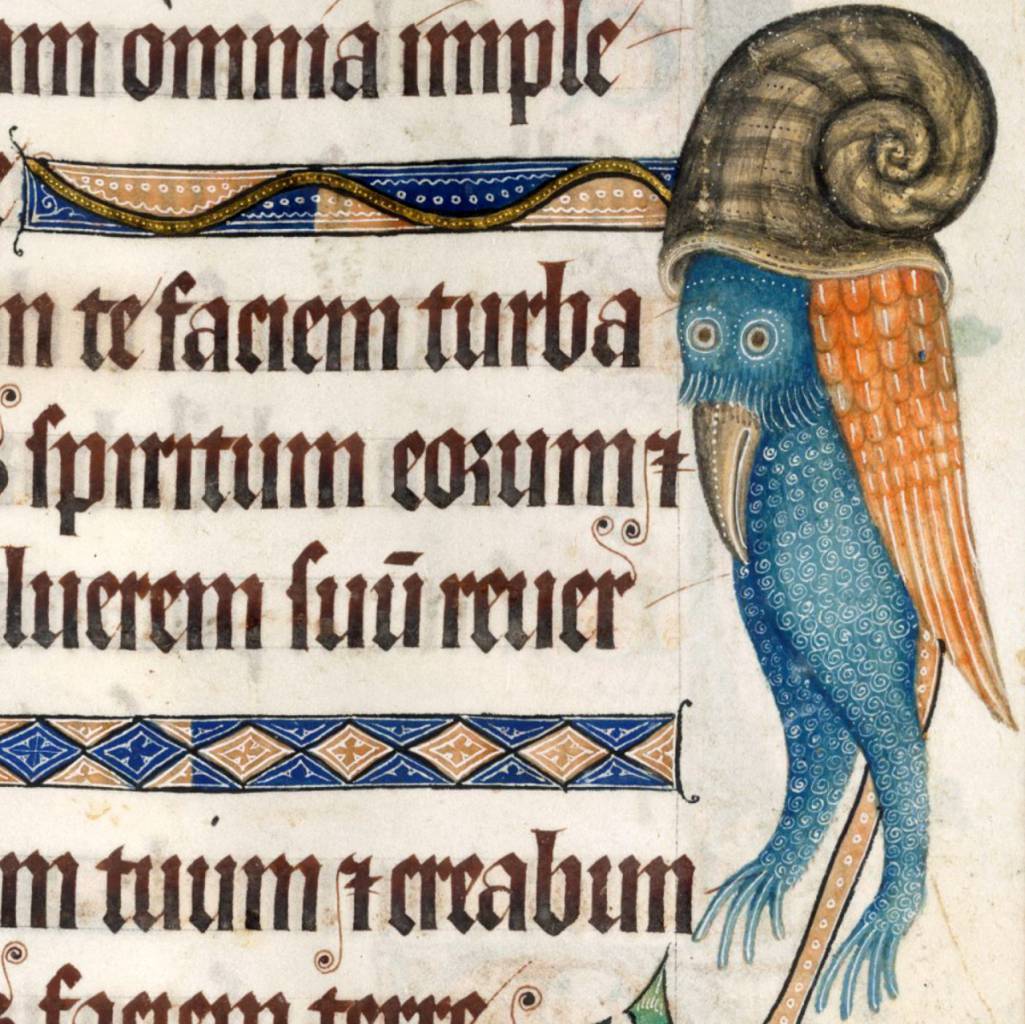 am omnia imple
n te faciem turba
s spiritum eorum ⁊
luerem suū reuer
m tuum ⁊ creabun
s faciem terre